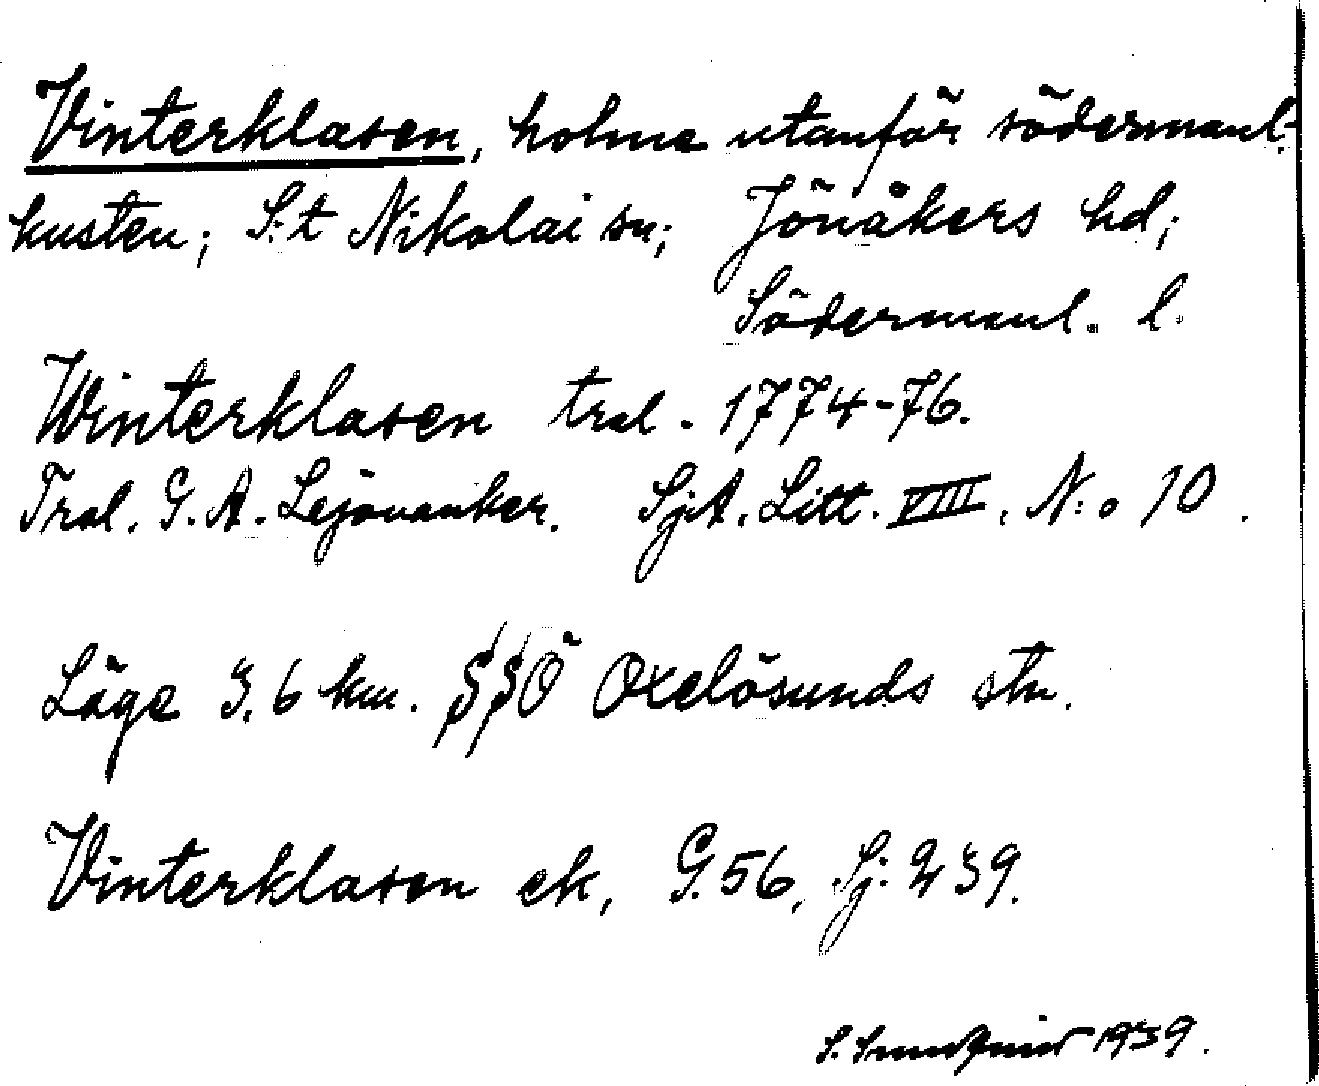 Vinterklasen, holme utanför södermanl.-
kusten; S:t Nikolai sn; Jönåkers hd;
Södermanl. l.
Winterklasen tral. 1774-76.
Tral. G. A. Lejonanker. SjA. Litt. VIII. N:o 10.
Läge 3,6 km. SSÖ Oxelösunds stn.
Vinterklasen ek, G. 56, Sj: 239.
S. 1939.